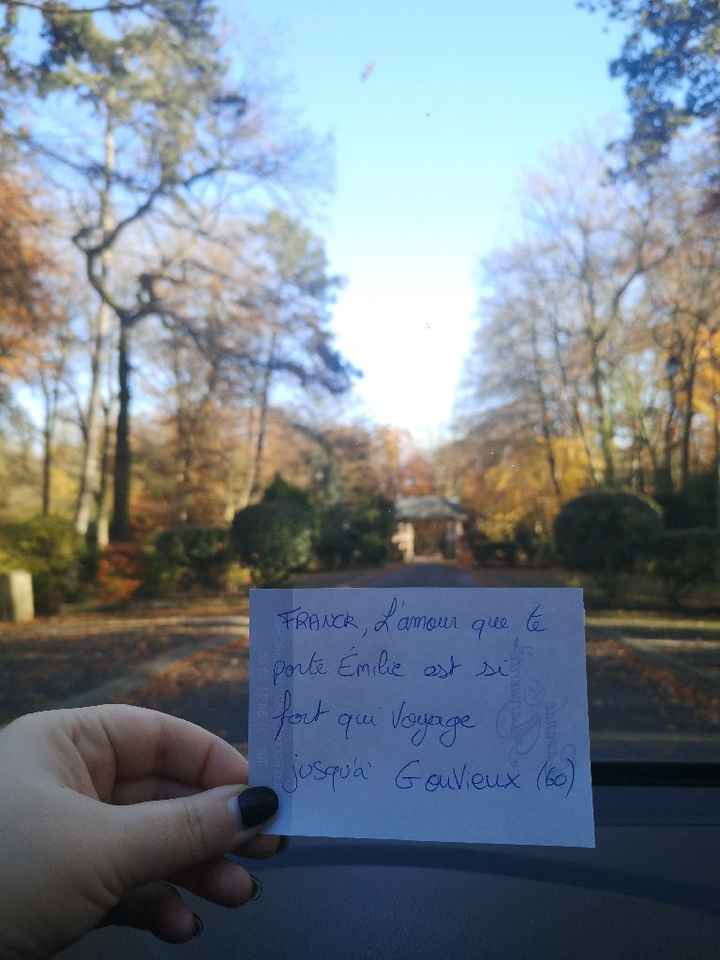 FRANCK, L'amour que te
porte Émilie est si
fort qui Voyage
jusqu'à Gouvieux (60)